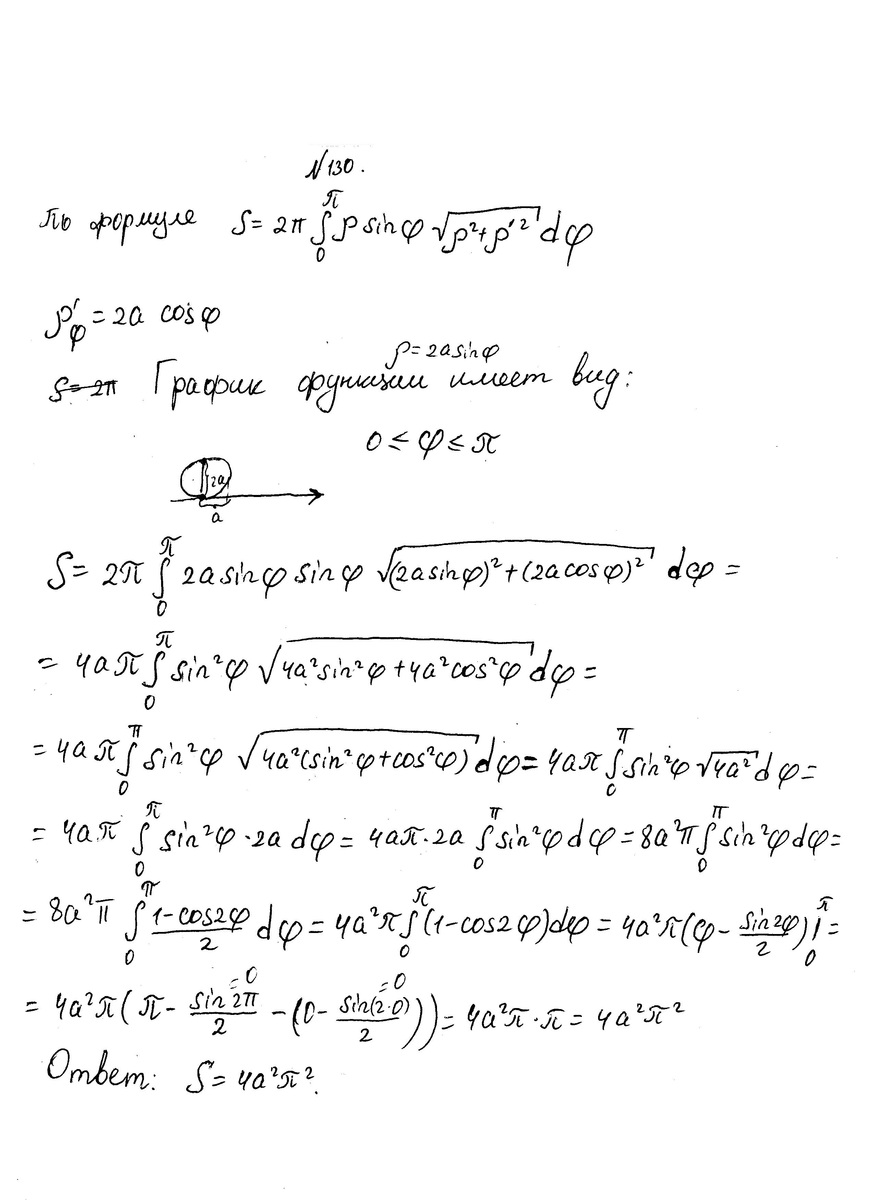 N 130.
по формуле S = 2π ∫₀^π ρ sin φ √(ρ² + ρ'²) dφ
ρ'_φ = 2a cos φ
ρ = 2a sin φ
S = 2π График функции имеет вид:
0 ≤ φ ≤ π
2a
a
S = 2π ∫₀^π 2a sin φ sin φ √((2a sin φ)² + (2a cos φ)²) dφ =
= 4aπ ∫₀^π sin²φ √(4a² sin²φ + 4a² cos²φ) dφ =
= 4aπ ∫₀^π sin²φ √(4a²(sin²φ + cos²φ)) dφ = 4aπ ∫₀^π sin²φ √(4a²) dφ =
= 4aπ ∫₀^π sin²φ · 2a dφ = 4aπ · 2a ∫₀^π sin²φ dφ = 8a²π ∫₀^π sin²φ dφ =
= 8a²π ∫₀^π (1 - cos 2φ)/2 dφ = 4a²π ∫₀^π (1 - cos 2φ) dφ = 4a²π (φ - (sin 2φ)/2) |₀^π =
= 4a²π (π - (sin 2π)/2 ⁼⁰ - (0 - (sin(2·0))/2 ⁼⁰)) = 4a²π · π = 4a²π²
Ответ: S = 4a²π².